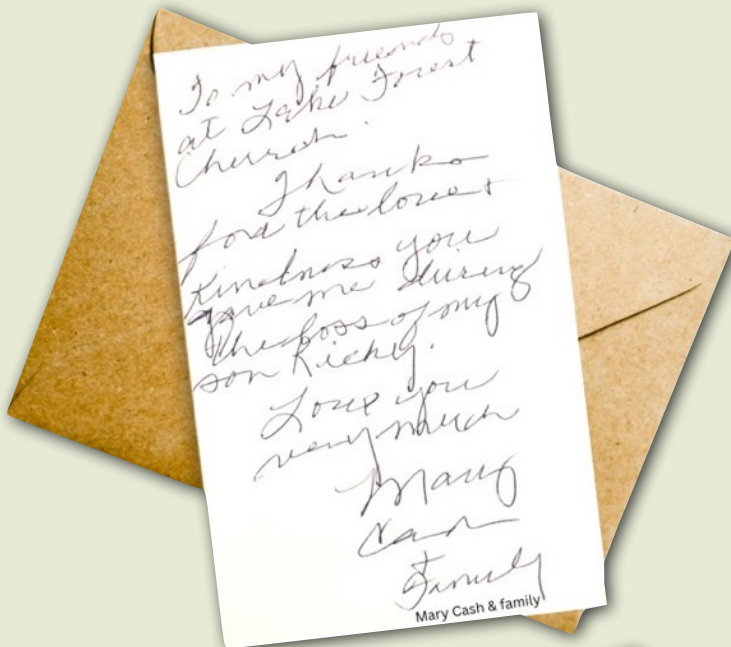 To my friends
at Lake Forest
Church.
Thanks
for the love +
Kindness you
gave me during
the loss of my
son Richy.
Love you
very much
Mary
Cash
+ Family
Mary Cash & family